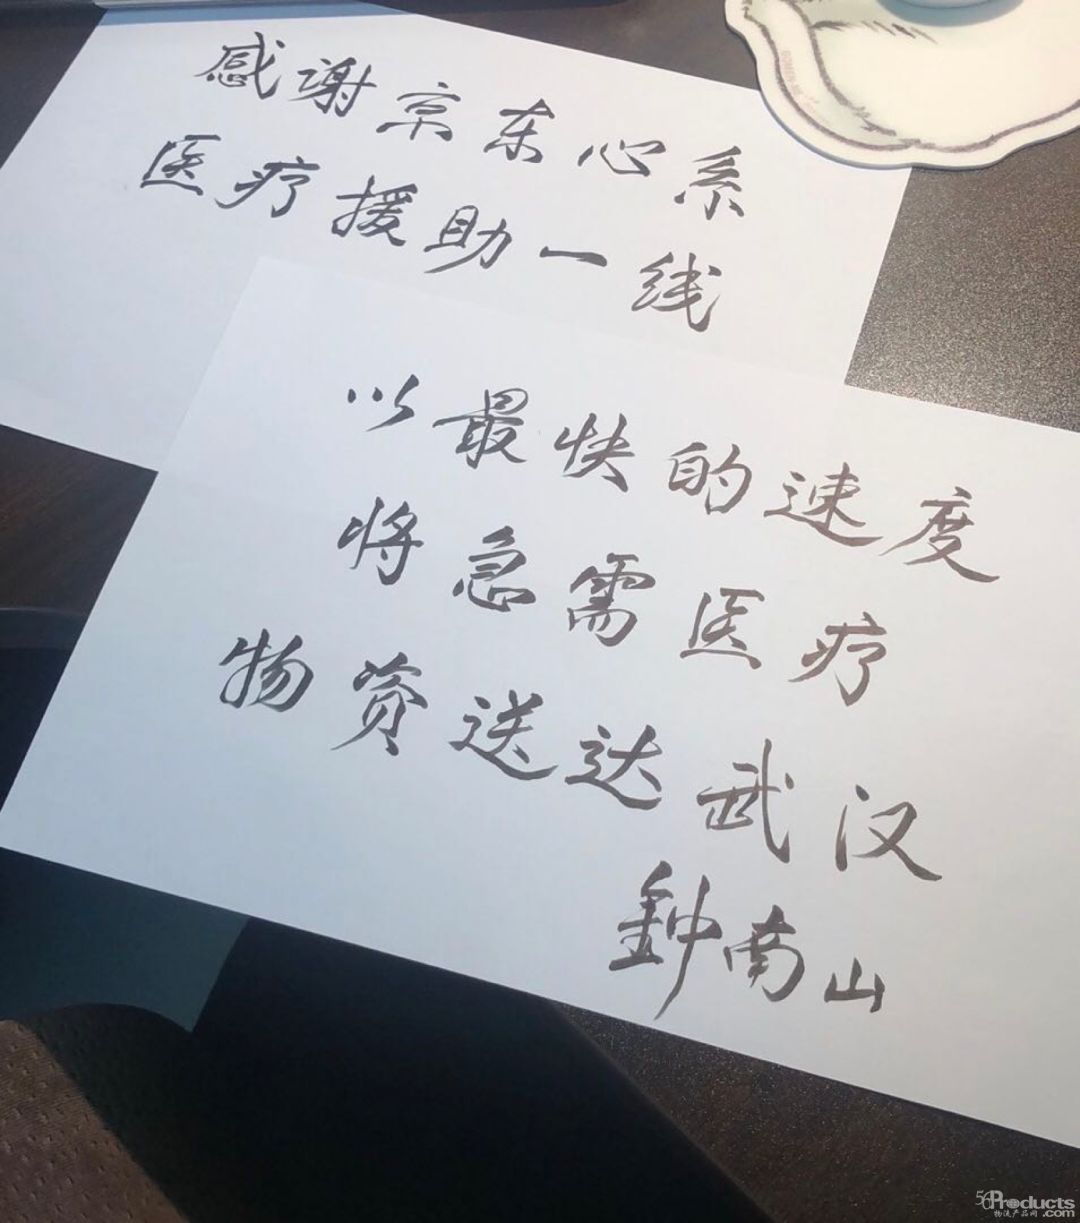 感谢京东心系
医疗援助一线
以最快的速度
将急需医疗
物资送达武汉
钟南山
56Products
物流产品网.com